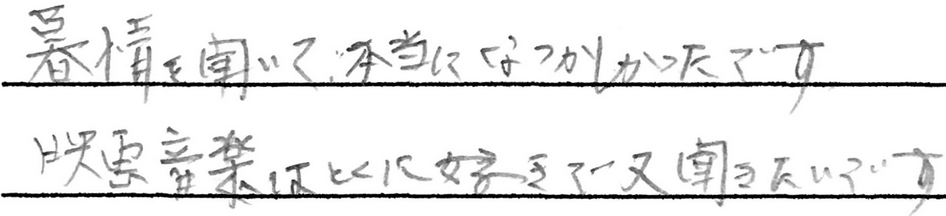 慕情を聞いて、本当になつかしかったです
映画音楽はとくに好きで又聞きたいです